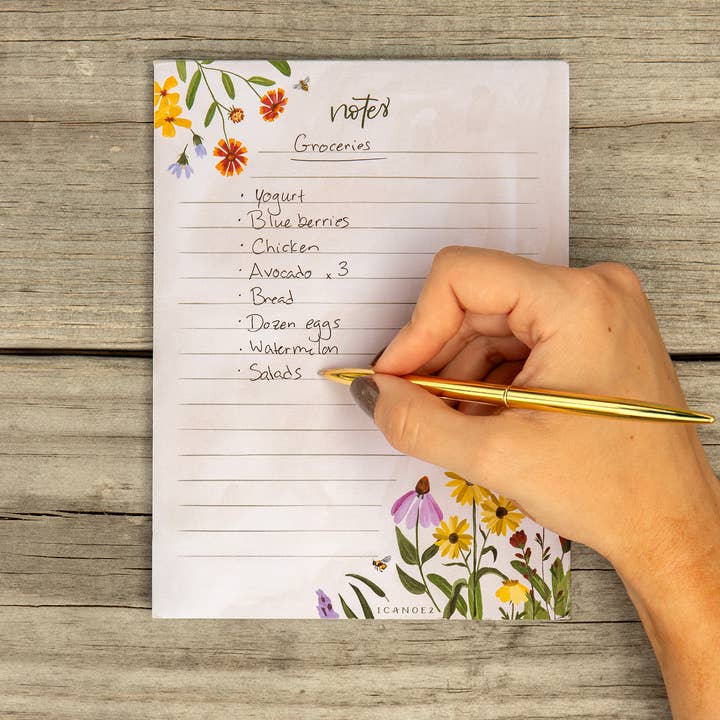 notes
Groceries
· Yogurt
· Blue berries
· Chicken
· Avocado x 3
· Bread
· Dozen eggs
· Watermelon
· Salads
1CANOE2